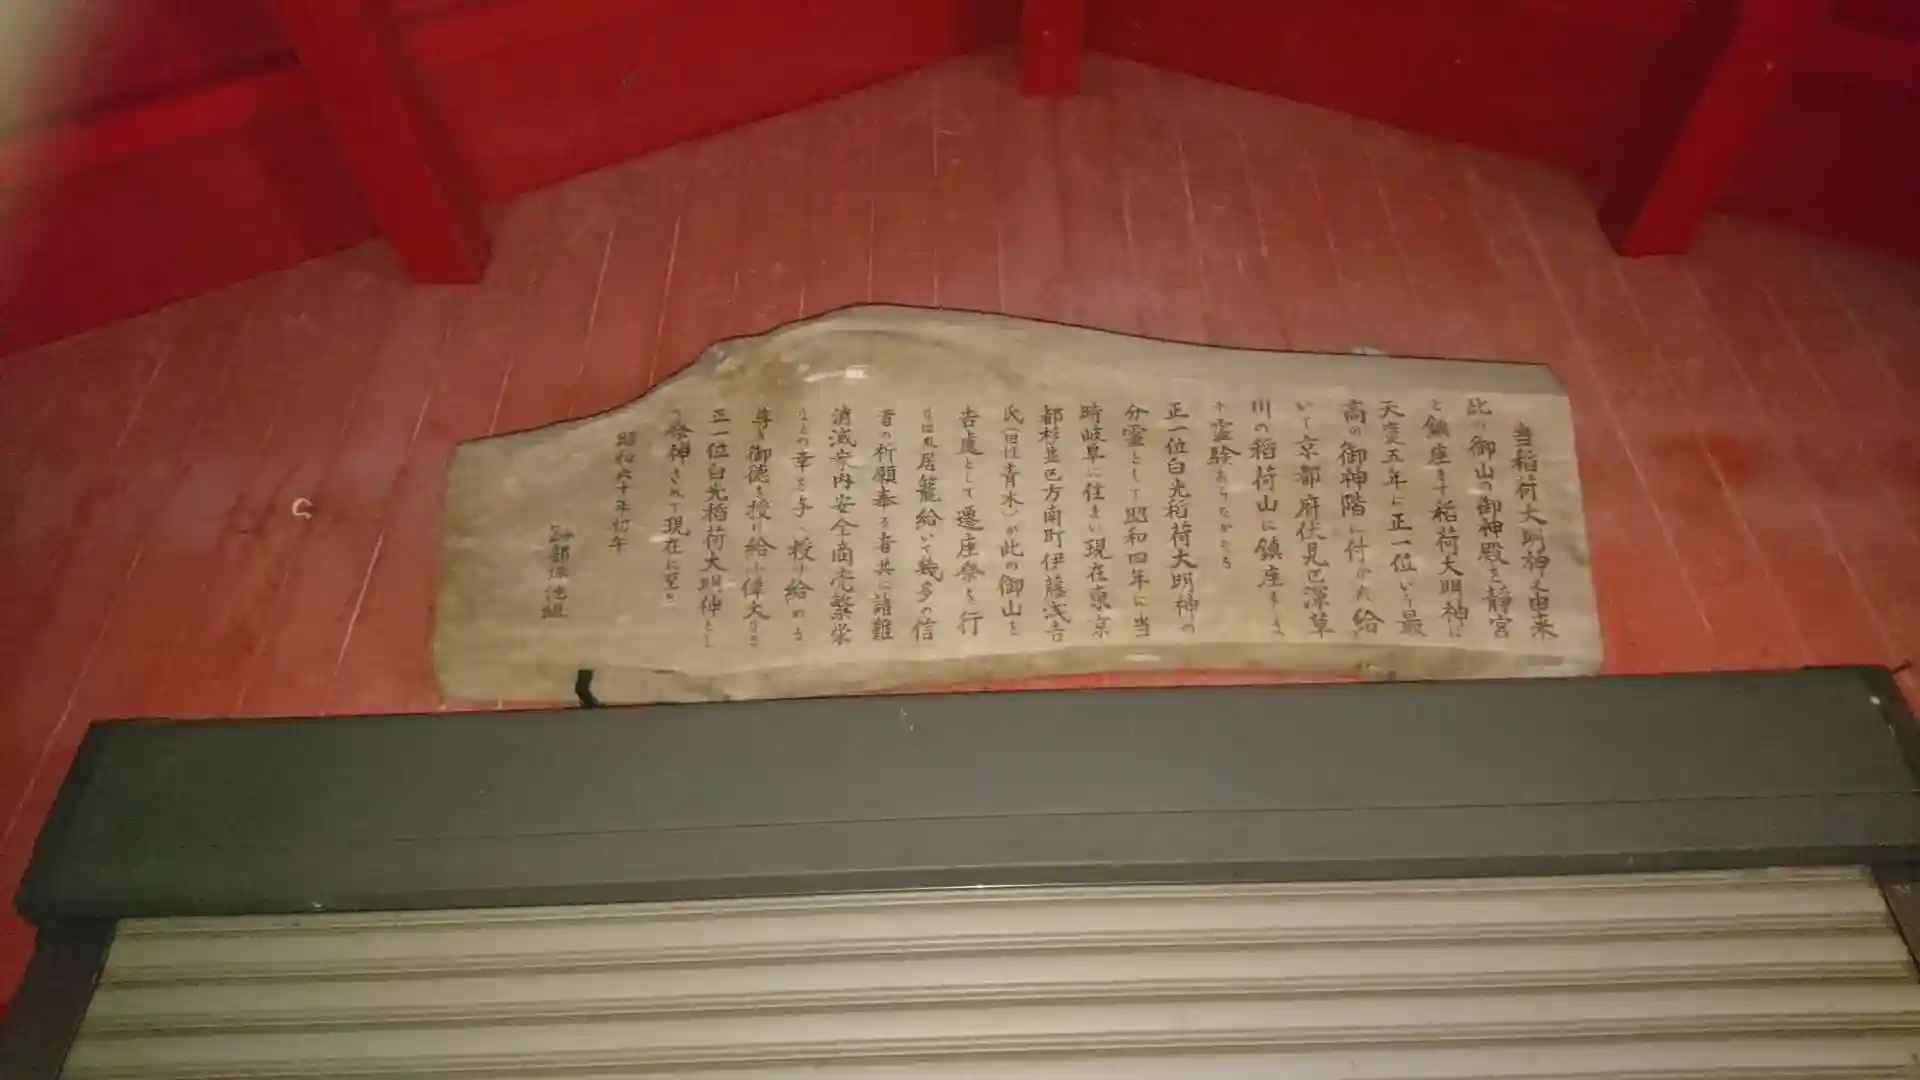 当稲荷大明神之由来
此の御山の御神殿を静宮
と鎮座ます稲荷大明神は
天慶五年に正一位いう最
高の御神階に付かれ給
いて京都府伏見区深草
川の稲荷山に鎮座まします
霊験あらたかなる
正一位白光稲荷大明神の
分霊として昭和四年に当
時岐阜に住まい現在東京
都杉並区方南町伊藤浅吉
氏(旧姓青木)が此の御山を
吉處として遷座祭を行
居籠給いて幾多の信
者の祈願奉る者共に諸難
消滅家内安全商売繁栄
なとの幸を与へ授け給める
尊き御徳を授け給ふ偉大なる
正一位白光稲荷大明神とし
祭神されて現在に至る
昭和六十年初午